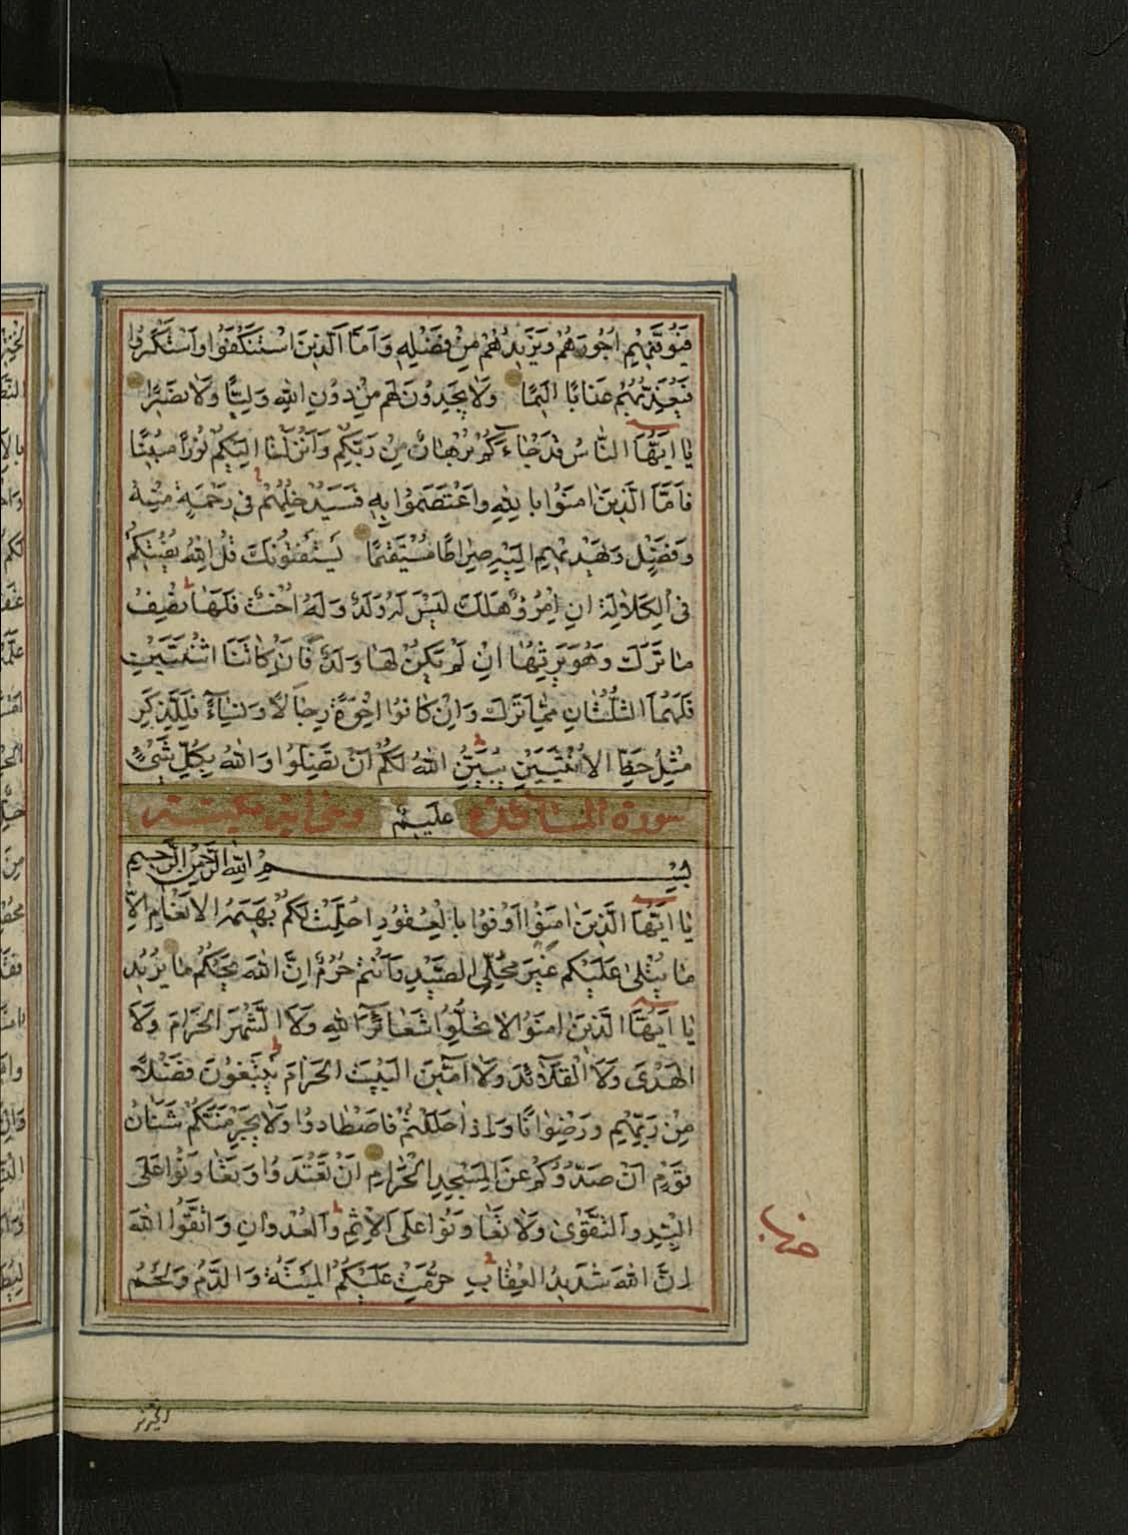 فَيُوَفِّيهِمْ اُجُورَهُمْ وَيَزِيدُهُمْ مِنْ فَضْلِهِ وَاَمَّا الَّذِينَ اسْتَنْكَفُوا وَاسْتَكْبَرُوا
فَيُعَذِّبُهُمْ عَذَابًا اَلِيمًا وَلَا يَجِدُونَ لَهُمْ مِنْ دُونِ اللهِ وَلِيًّا وَلَا نَصِيرًا
يَا اَيُّهَا النَّاسُ قَدْ جَاءَكُمْ بُرْهَانٌ مِنْ رَبِّكُمْ وَاَنْزَلْنَا اِلَيْكُمْ نُورًا مُبِينًا
فَاَمَّا الَّذِينَ امَنُوا بِاللهِ وَاعْتَصَمُوا بِهِ فَسَيُدْخِلُهُمْ فِي رَحْمَةٍ مِنْهُ
وَفَضْلٍ وَيَهْدِيهِمْ اِلَيْهِ صِرَاطًا مُسْتَقِيمًا يَسْتَفْتُونَكَ قُلِ اللهُ يُفْتِيكُمْ
فِي الْكَلَالَةِ اِنِ امْرُؤٌ هَلَكَ لَيْسَ لَهُ وَلَدٌ وَلَهُ اُخْتٌ فَلَهَا نِصْفُ
مَا تَرَكَ وَهُوَ يَرِثُهَا اِنْ لَمْ يَكُنْ لَهَا وَلَدٌ فَاِنْ كَانَتَا اثْنَتَيْنِ
فَلَهُمَا الثُّلُثَانِ مِمَّا تَرَكَ وَاِنْ كَانُوا اِخْوَةً رِجَالًا وَنِسَاءً فَلِلذَّكَرِ
مِثْلُ حَظِّ الْاُنْثَيَيْنِ يُبَيِّنُ اللهُ لَكُمْ اَنْ تَضِلُّوا وَاللهُ بِكُلِّ شَيْءٍ
سورة المائدة عَلِيمٌ
بِسْمِ اللهِ الرَّحْمنِ الرَّحِيمِ
يَا اَيُّهَا الَّذِينَ امَنُوا اَوْفُوا بِالْعُقُودِ اُحِلَّتْ لَكُمْ بَهِيمَةُ الْاَنْعَامِ اِلَّا
مَا يُتْلى عَلَيْكُمْ غَيْرَ مُحِلِّي الصَّيْدِ وَاَنْتُمْ حُرُمٌ اِنَّ اللهَ يَحْكُمُ مَا يُرِيدُ
يَا اَيُّهَا الَّذِينَ امَنُوا لَا تُحِلُّوا شَعَائِرَ اللهِ وَلَا الشَّهْرَ الْحَرَامَ وَلَا
الْهَدْيَ وَلَا الْقَلَائِدَ وَلَا امِّينَ الْبَيْتَ الْحَرَامَ يَبْتَغُونَ فَضْلًا
مِنْ رَبِّهِمْ وَرِضْوَانًا وَاِذَا حَلَلْتُمْ فَاصْطَادُوا وَلَا يَجْرِمَنَّكُمْ شَنَانُ
قَوْمٍ اَنْ صَدُّوكُمْ عَنِ الْمَسْجِدِ الْحَرَامِ اَنْ تَعْتَدُوا وَتَعَاوَنُوا عَلَى
الْبِرِّ وَالتَّقْوى وَلَا تَعَاوَنُوا عَلَى الْاِثْمِ وَالْعُدْوَانِ وَاتَّقُوا اللهَ
اِنَّ اللهَ شَدِيدُ الْعِقَابِ حُرِّمَتْ عَلَيْكُمُ الْمَيْتَةُ وَالدَّمُ وَلَحْمُ
الخنزير